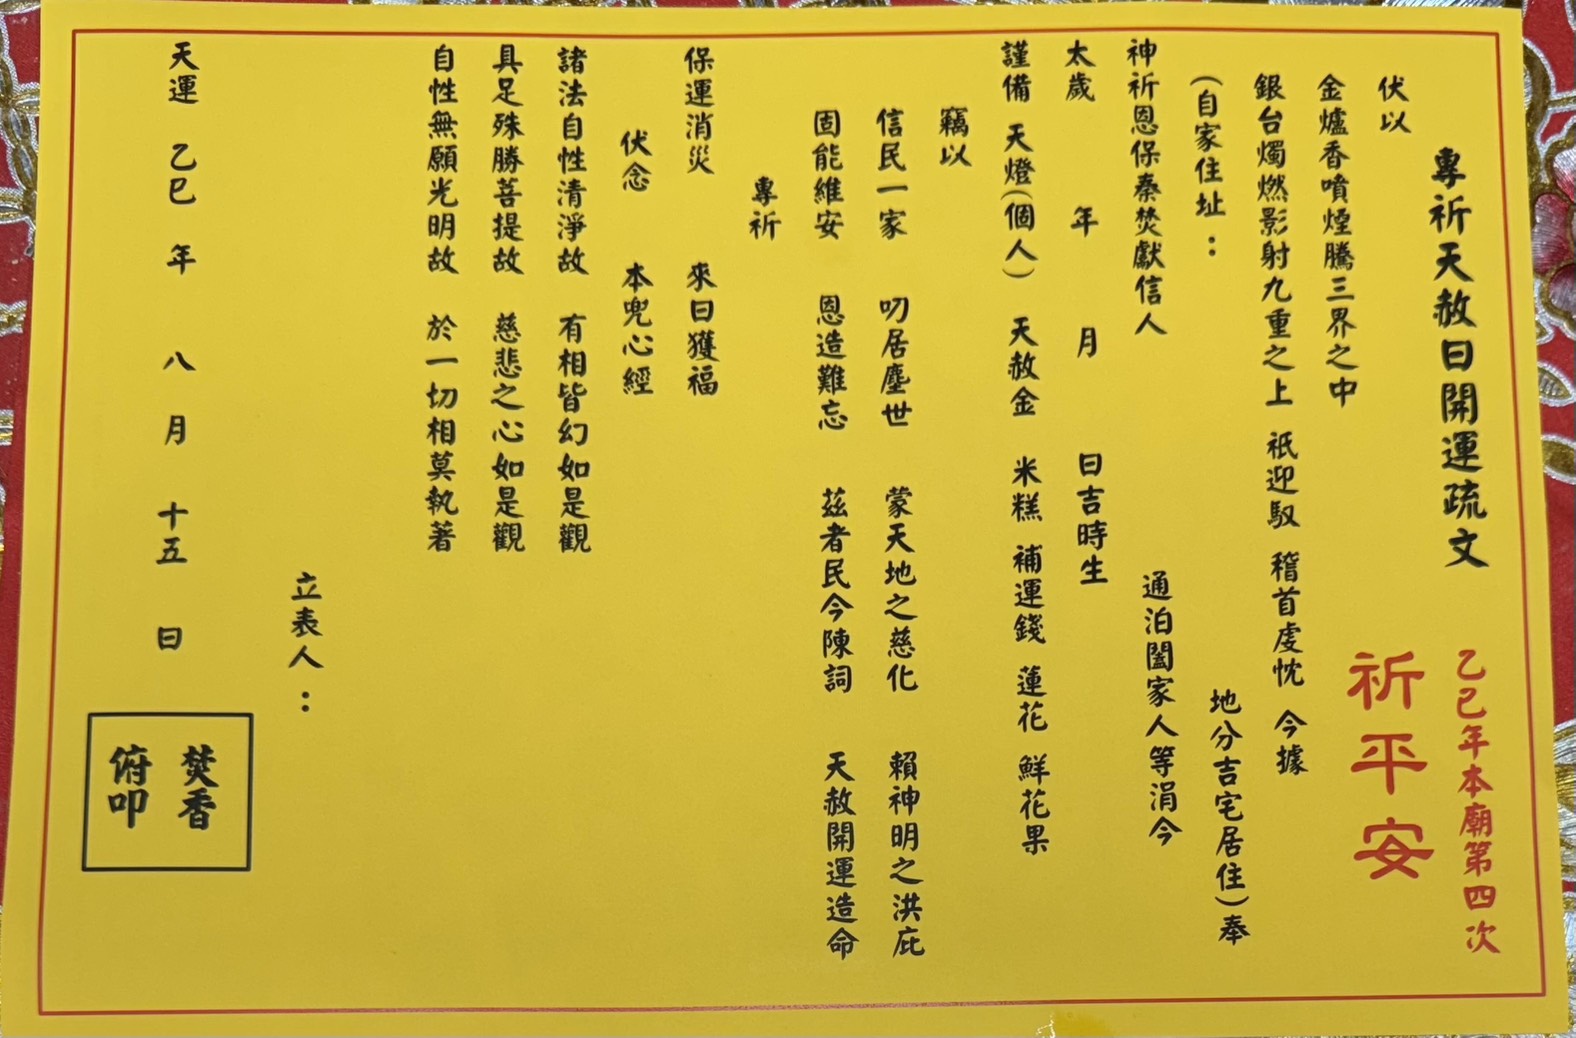 專祈天赦日開運疏文
乙巳年本廟第四次
祈平安
伏以
金爐香噴煙騰三界之中
銀台燭燃影射九重之上 祇迎馭 稽首虔忱 今據
(自家住址： 地分吉宅居住)奉
神祈恩保奏焚獻信人 通泊闔家人等涓今
太歲 年 月 日吉時生
謹備 天燈(個人) 天赦金 米糕 補運錢 蓮花 鮮花果
竊以
信民一家 叨居塵世 蒙天地之慈化 賴神明之洪庇
固能維安 恩造難忘 茲者民今陳詞 天赦開運造命
專祈
保運消災 來日獲福
伏念 本兜心經
諸法自性清淨故 有相皆幻如是觀
具足殊勝菩提故 慈悲之心如是觀
自性無願光明故 於一切相莫執著
立表人：
天運 乙巳 年 八 月 十五 日
焚香
俯叩